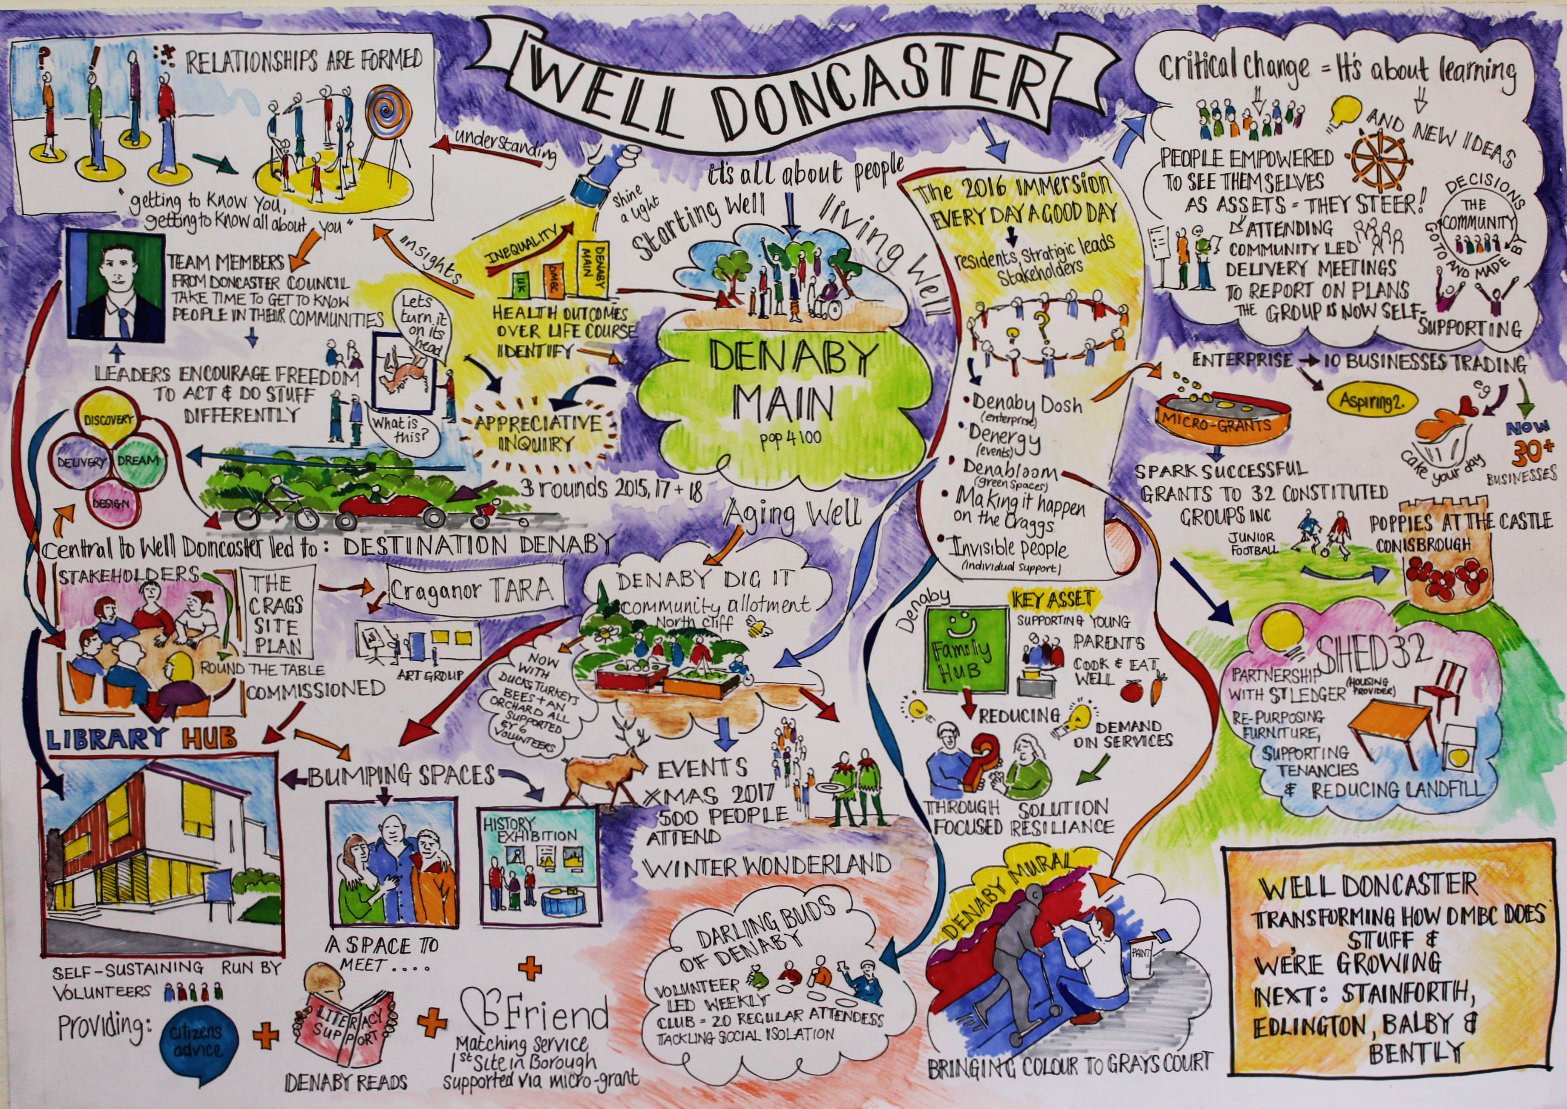 WELL DONCASTER
? ! :*
RELATIONSHIPS ARE FORMED
"getting to know You,
getting to know all about you"
understanding
insights
shine
a light
it's all about people
Starting Well
living Well
Aging Well
INEQUALITY
UK
DMBC
DENABY
MAIN
HEALTH OUTCOMES
OVER LIFE COURSE
IDENTIFY
APPRECIATIVE
INQUIRY
3 rounds 2015, 17 + 18
DENABY
MAIN
pop 4100
TEAM MEMBERS
FROM DONCASTER COUNCIL
TAKE TIME TO GET TO KNOW
PEOPLE IN THEIR COMMUNITIES
LEADERS ENCOURAGE FREEDOM
TO ACT & DO STUFF
DIFFERENTLY
Lets
turn it
on its
head
What is
this?
DISCOVERY
DELIVERY
DREAM
DESIGN
Central to Well Doncaster led to: DESTINATION DENABY
STAKEHOLDERS
ROUND THE TABLE
COMMISSIONED
THE
CRAGS
SITE
PLAN
Craganor TARA
ART GROUP
LIBRARY HUB
SELF-SUSTAINING RUN BY
VOLUNTEERS
Providing:
citizens
advice
+
LITERACY
SUPPORT
DENABY READS
+
BUMPING SPACES
A SPACE TO
MEET....
HISTORY
EXHIBITION
+
B Friend
Matching Service
1st Site in Borough
supported via micro-grant
DENABY DIG IT
community allotment
North Cliff
NOW
WITH
DUCKS TURKEYS
BEES + AN
ORCHARD ALL
SUPPORTED
BY 6
VOLUNTEERS
EVENTS
XMAS 2017
500 PEOPLE
ATTEND
WINTER WONDERLAND
DARLING BUDS
OF DENABY
VOLUNTEER
LED WEEKLY
CLUB = 20 REGULAR ATTENDESS
TACKLING SOCIAL ISOLATION
The 2016 IMMERSION
EVERY DAY A GOOD DAY
residents, Stratigic leads
Stakeholders
? ? ?
• Denaby Dosh
(enterprise)
• Denergy
(events)
• Denabloom
(green Spaces)
• Making it happen
on the Craggs
• Invisible People
(individual support)
Denaby
Family
HUB
KEY ASSET
SUPPORTING YOUNG
PARENTS
COOK & EAT
WELL
REDUCING
DEMAND
ON SERVICES
THROUGH SOLUTION
FOCUSED RESILIANCE
DENABY MURAL
PAINT
BRINGING COLOUR TO GRAYS COURT
Critical change = It's about learning
AND NEW IDEAS
PEOPLE EMPOWERED
TO SEE THEMSELVES
AS ASSETS - THEY STEER!
ATTENDING
COMMUNITY LED
DELIVERY MEETINGS
TO REPORT ON PLANS
THE GROUP IS NOW SELF-
SUPPORTING
DECISIONS
GO TO AND MADE BY
THE
COMMUNITY
ENTERPRISE → 10 BUSINESSES TRADING
Aspiring2.
eg
Cake your day
NOW
30+
BUSINESSES
MICRO-GRANTS
SPARK SUCCESSFUL
GRANTS TO 32 CONSTITUTED
GROUPS INC
JUNIOR
FOOTBALL
POPPIES AT THE CASTLE
CONISBROUGH
SHED 32
PARTNERSHIP
WITH ST LEDGER
(HOUSING
PROVIDER)
RE-PURPOSING
FURNITURE,
SUPPORTING
TENANCIES
& REDUCING LANDFILL
WELL DONCASTER
TRANSFORMING HOW DMBC DOES
STUFF &
WE'RE GROWING
NEXT: STAINFORTH,
EDLINGTON, BALBY &
BENTLY